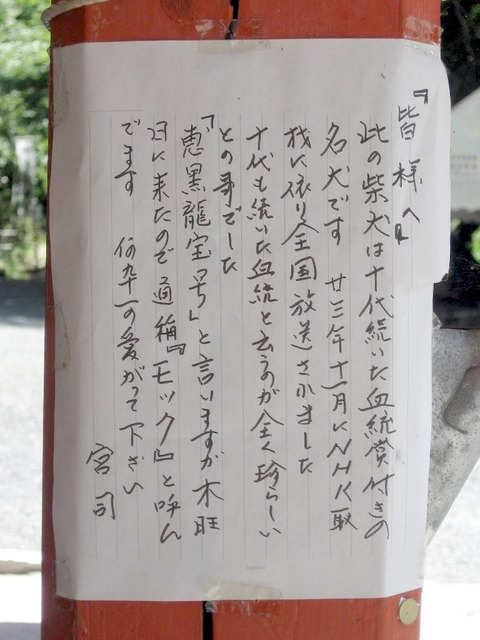 『皆様へ』
此の柴犬は十代続いた血統賞付きの
名犬です 廿三年十一月にNHK取
材に依り全国放送されました
十代も続いた血統と云うのが全く珍らしい
との事でした
「恵黒龍宝号」と言いますが木旺
日に来たので通称『モック』と呼ん
でます 何卆可愛がって下さい
宮司